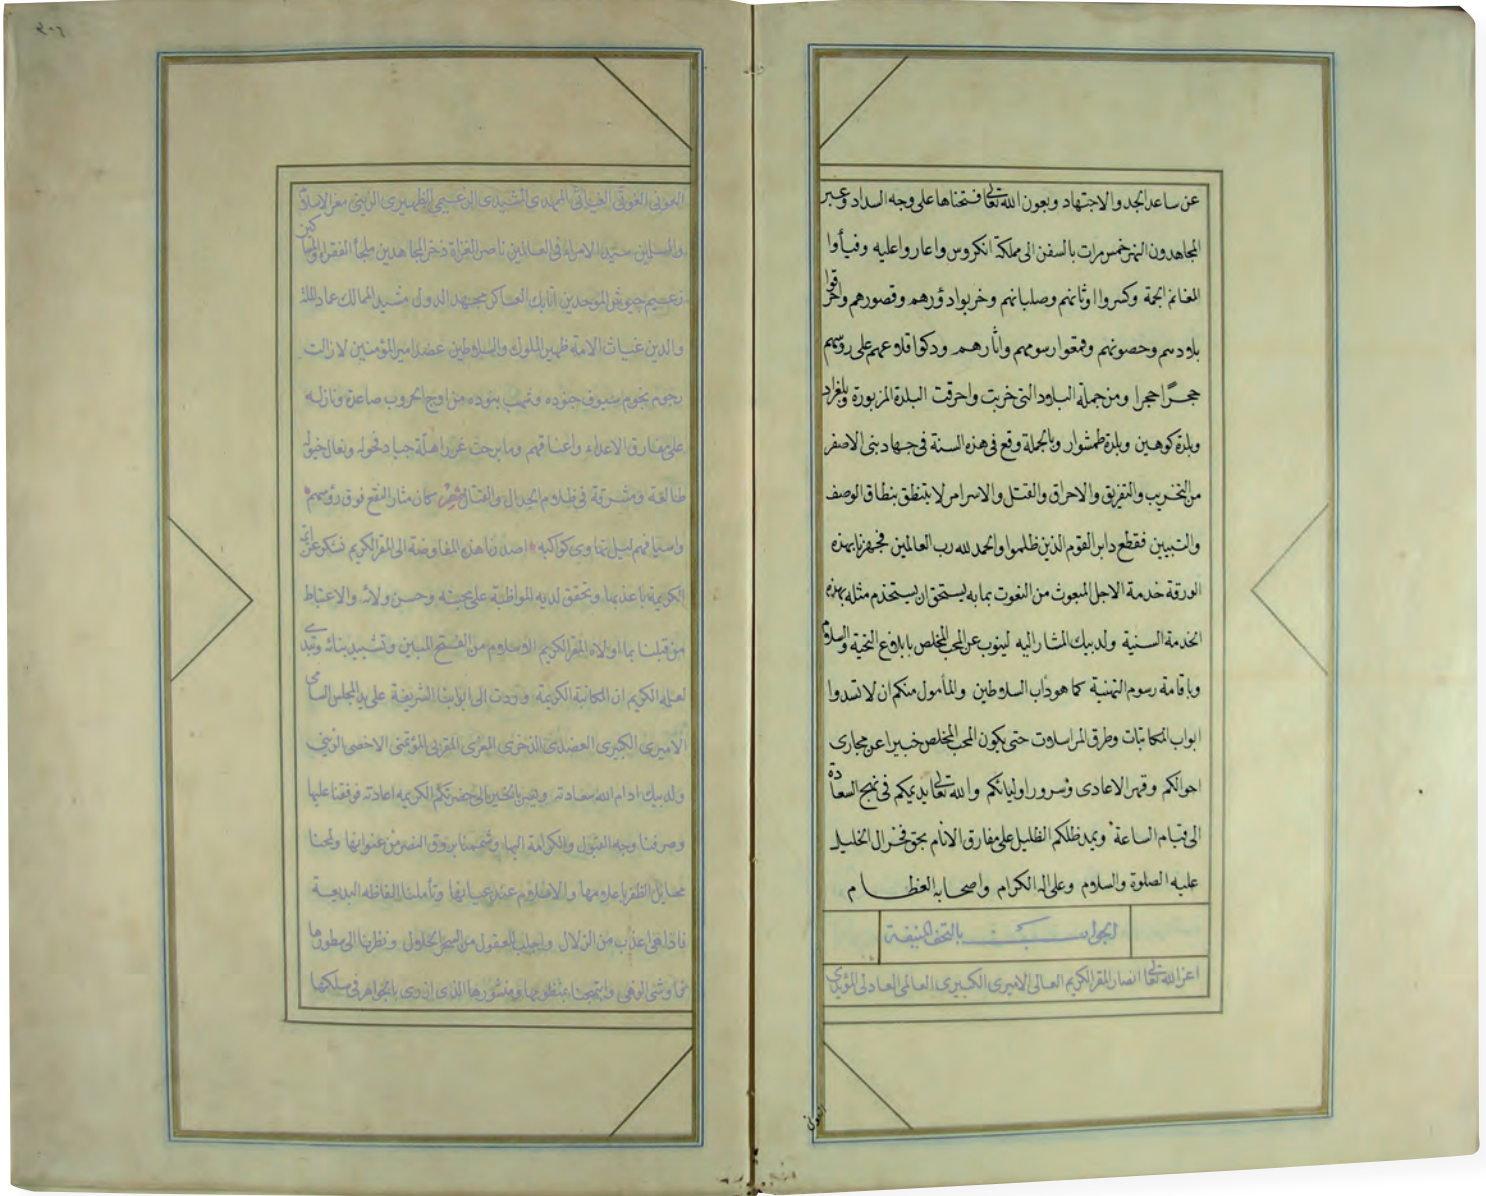 عن ساعد الجد والاجتهاد وبعون الله تعالى فتحناها على وجه السداد وعبر
المجاهدون النهر خمس مرات بالسفن الى مملكة انكروس واغاروا عليه وفيأوا
المغانم الجمة وكسروا اوثانهم وصلبانهم وخربوا دورهم وقصورهم واحرقوا
بلادهم وحصونهم وقمعوا رسومهم واثارهم ودكوا قلاعهم على رؤسهم
حجرا حجرا ومن جملة البلاد التى خربت واحرقت البلدة المزبورة وبلغراد
وبلدة كوهين وبلدة طمشوار وبالجملة وقع فى هذه السنة فى جهاد بنى الاصفر
من التخريب والتفريق والاحراق والقتل والاسر امر لا يتنطق بنطاق الوصف
والتبيين فقطع دابر القوم الذين ظلموا والحمد لله رب العالمين فجهزنا بهذه
الورقة خدمة الاجل المبعوث من النعوت بما به يستحق ان يستخدم مثله بهذه
الخدمة السنية ولد بيك المشار اليه لينوب عن المحب المخلص بابلاغ التحية والسلام
وباقامة رسوم التهنية كما هو دأب السلاطين والمأمول منكم ان لا تسدوا
ابواب المكاتبات وطرق المراسلات حتى يكون المحب المخلص خبيرا عن مجارى
احوالكم وقهر الاعادى وسرور اوليائكم والله تعالى يديمكم فى نهج السعادة
الى قيام الساعة ويمد ظلكم الظليل على مفارق الانام بحق فخر ال الخليل
عليه الصلوة والسلام وعلى اله الكرام واصحابه العظام
الجواب بالتحف المنيفة
اعز الله تعالى انصار المقر الكريم العالى الاميرى الكبيرى العالمى العادلى المؤيدى
العونى
٢٠٦
العونى الغوثى الغياثى الممهدى المشيدى الزعيمى الظهيرى الزينى معز الاسلام
والمسلمين سيد الامراء فى العالمين ناصر الغزاة ذخر المجاهدين ملجأ الفقراء والمساكين
زعيم جيوش الموحدين اتابك العساكر ممهد الدول مشيد الممالك عماد الملة
والدين غياث الامة ظهير الملوك والسلاطين عضد امير المؤمنين لا زالت
رجوم نجوم سيوف جنوده وشهب بنوده من اوج الحروب صاعدة ونازلة
على مفارق الاعداء واعناقهم وما برحت غرر اهلة جياد فحوله ونعال خيوله
طالعة ومشرقة فى ظلام الجدال والقتال شعر كان مثار النقع فوق رؤسهم
واسيافهم ليل تهاوى كواكبه اصدرنا هذه المفاوضة الى المقر الكريم
الكريمة باعذبها وتحقق لديه المواظبة على محبته وحسن ولائه والاغتباط
من قبلنا بما اولاه المقر الكريم الاسلام من الفتح المبين وتشييد بنائه وتبدى
لعلمه الكريم ان المكاتبة الكريمة وردت الى ابوابنا الشريفة على يد المجلس السامى
الاميرى الكبيرى العضدى الذخرى المعزى المقربى المؤتمنى الاخصى الزينى
ولد بيك ادام الله سعادته الى حضرتكم الكريمه اعادته فوقفنا عليها
وصرفنا وجه القبول والكرامة اليها من عنوانها ولمحنا
مخايل الظفر باعلامها والاقلام عند عيانها وتأملنا الفاظه البديعة
فاذا هى اعذب من الزلال واجلب للعقول من السحر الحلال ونظرنا الى سطورها
وابتهجنا بمنظومها ومنثورها الذى ازدرى بالجواهر فى سلكها